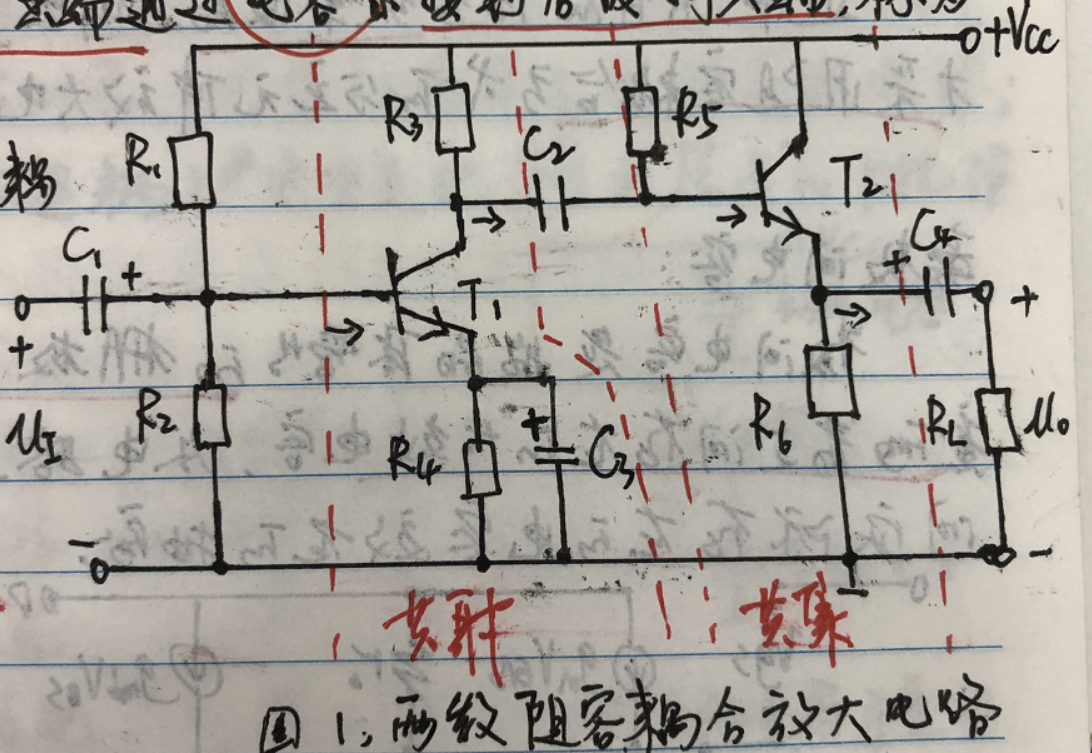 +Vcc
R₃
R₅
C₂
R₁
T₂
耦
C₁
+
T₁
C₄
+
+
+
U_I
R₂
R₄
+
C₃
R₆
R_L
u₀
-
-
共射
共集
图1、两级阻容耦合放大电路